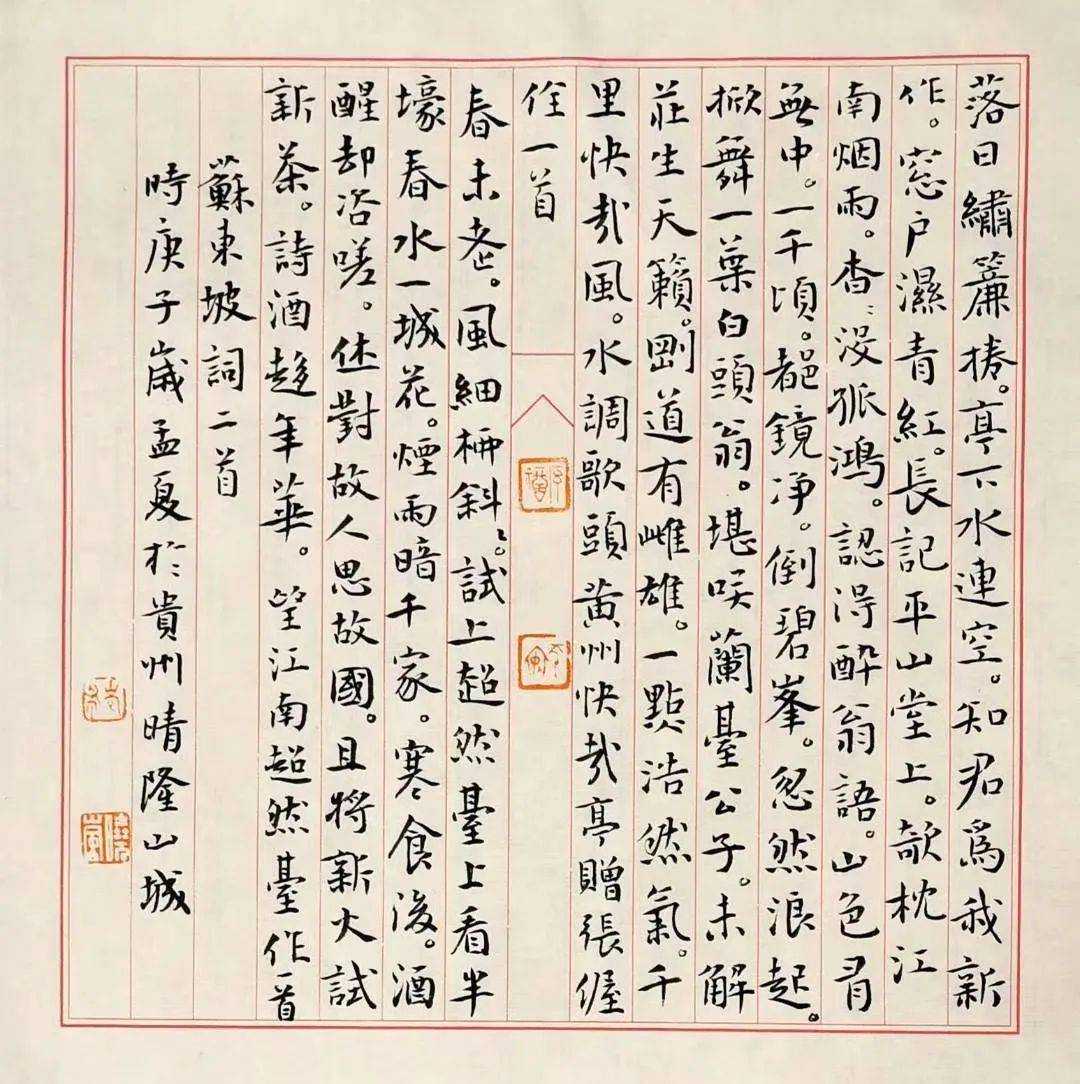 落日繡簾捲。亭下水連空。知君爲我新
作。窓户濕青紅。長記平山堂上。欹枕江
南烟雨。杳〻没孤鴻。認得醉翁語。山色有
無中。一千頃。都鏡净。倒碧峯。忽然浪起。
掀舞一葉白頭翁。堪咲蘭臺公子。未解
莊生天籟。剛道有雌雄。一點浩然氣。千
里快哉風。水調歌頭黄州快哉亭贈張偓
佺一首
春未老。風細柳斜〻。試上超然臺上看半
壕春水一城花。煙雨暗千家。寒食後。酒
醒却咨嗟。休對故人思故國。且將新火試
新茶。詩酒趁年華。望江南超然臺作一首
蘇東坡詞二首
時庚子歲孟夏於貴州晴隆山城